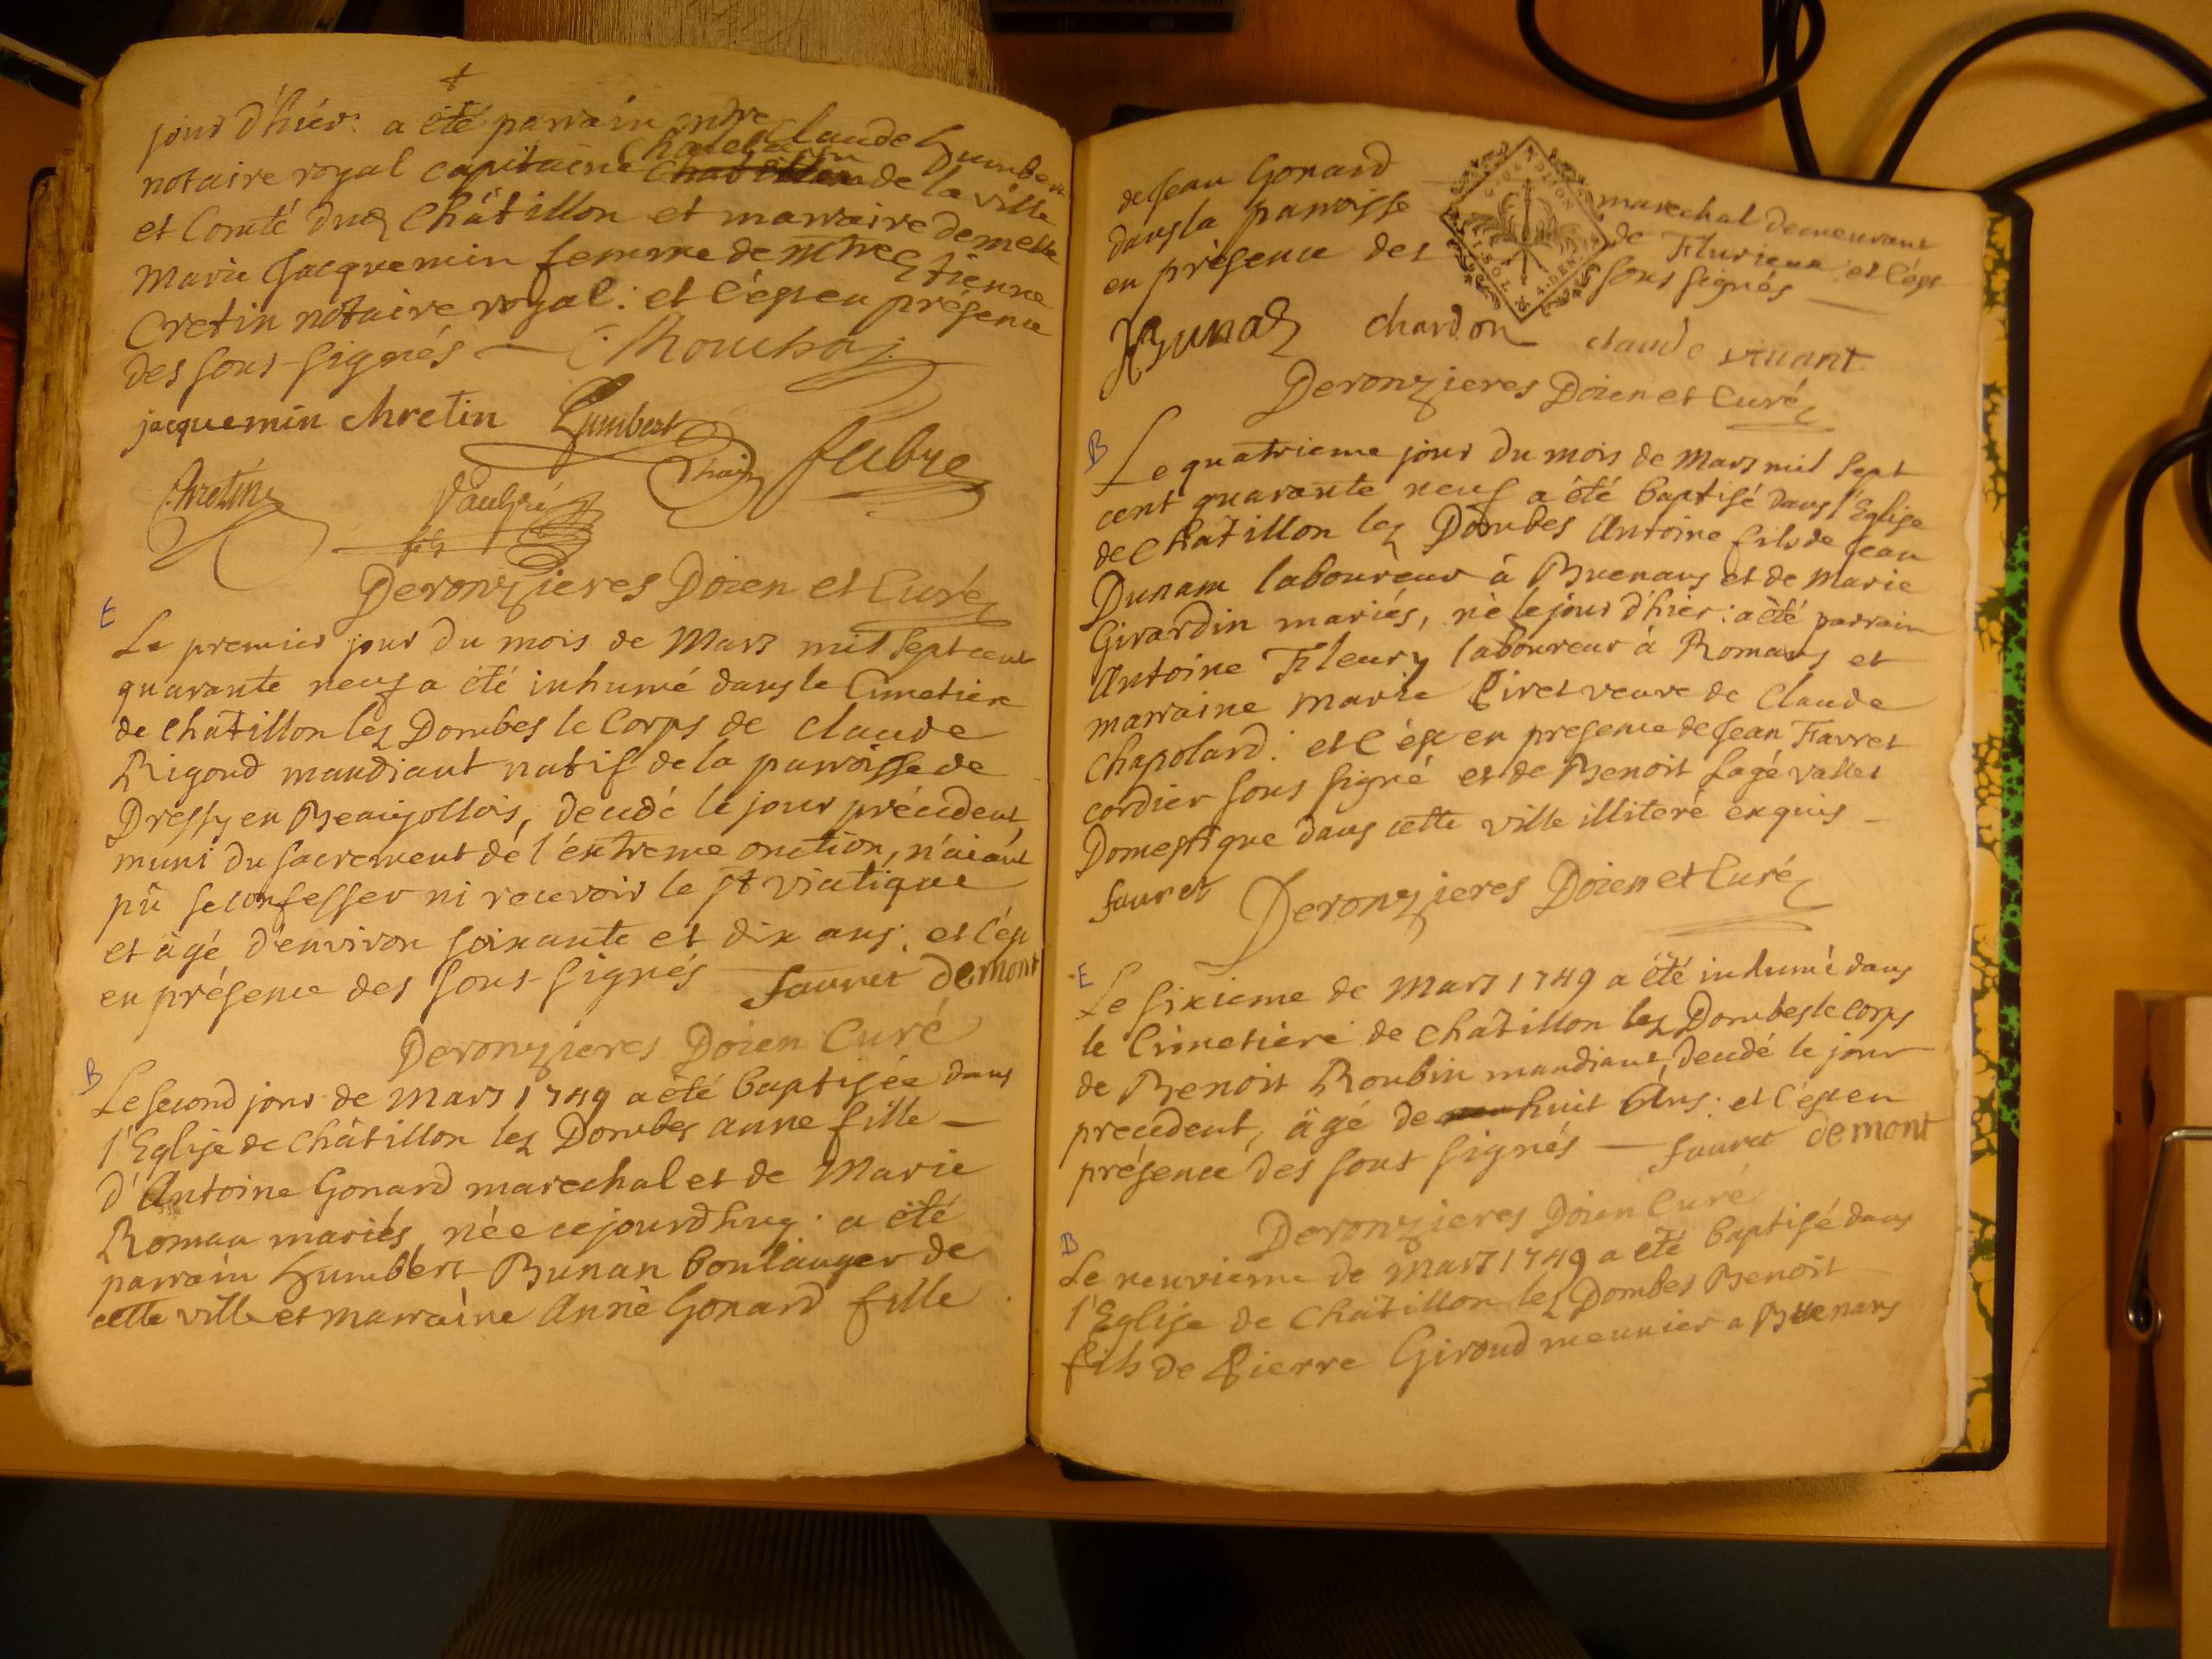 jour d'hièr: a été parrain mtre Claude humbert
notaire royal capitaine Châtelain de la ville
et Comté dud Châtillon et marraine demelle
Marie Jacquemin femme de mtre Etienne
Cretin notaire royal: et c'ést en présence
des sous-signés
jacquemin chretin Humbert
Chretin Fabre
Deronzieres Doien et Curé
E
Le premier jour du mois de Mars mil sept cent
quarante neuf a été inhumé dans le Cimetiere
de châtillon lez Dombes le Corps de Claude
Rigoud mandiant natif de la parroisse de
en Beaujollois, decedé le jour précedent,
muni du sacrement de l'éxtreme onction, n'aiant
pû se confesser ni recevoir le st viatique
et âgé d'environ soixante et dix ans: et c'ést
en présence des sous-signés fauret demont
Deronzieres Doien Curé
B
Le second jour de Mars 1749 a été baptisée dans
l'Eglise de Châtillon lez Dombes anne fille
d'Antoine Gonard marechal et de Marie
Roman mariés, née cejourdhuy: a été
parrain humbert Bunan boulanger de
cette ville et marraine Anne Gonard fille
de Jean Gonard marechal demeurant
dans la parroisse de Flurieux: et c'ést
en présence des sous signés
Bunad chardon claude vivant
Deronzieres Doien et Curé
B
Le quatrieme jour du mois de Mars mil sept
cent quarante neuf a été baptisé dans l'Eglise
de Châtillon lez Dombes Antoine fils de Jean
Dunam laboureur à Buenans et de Marie
Girardin mariés, né le jour d'hier: a été parrain
Antoine Fleury laboureur à Romans et
marraine marie Piret veuve de Claude
Chapolard: et c'ést en presence de Jean Favret
cordier sous signé et de Benoit Sagé vallet
Domestique dans cette ville illiteré enquis
fauret Deronzieres Doien et Curé
E
Le sixieme de Mars 1749 a été inhumé dans
le Cimetiere de Châtillon lez Dombes le corps
de Benoit Roubin mandiant, decedé le jour
precedent, âgé de huit Ans: et c'ést en
présence des sous signés fauret demont
Deronzieres Doien Curé
B
Le neuvieme de Mars 1749 a été baptisé dans
l'Eglise de Châtillon lez Dombes Benoit
fils de Pierre Giroud meunier a Buenans